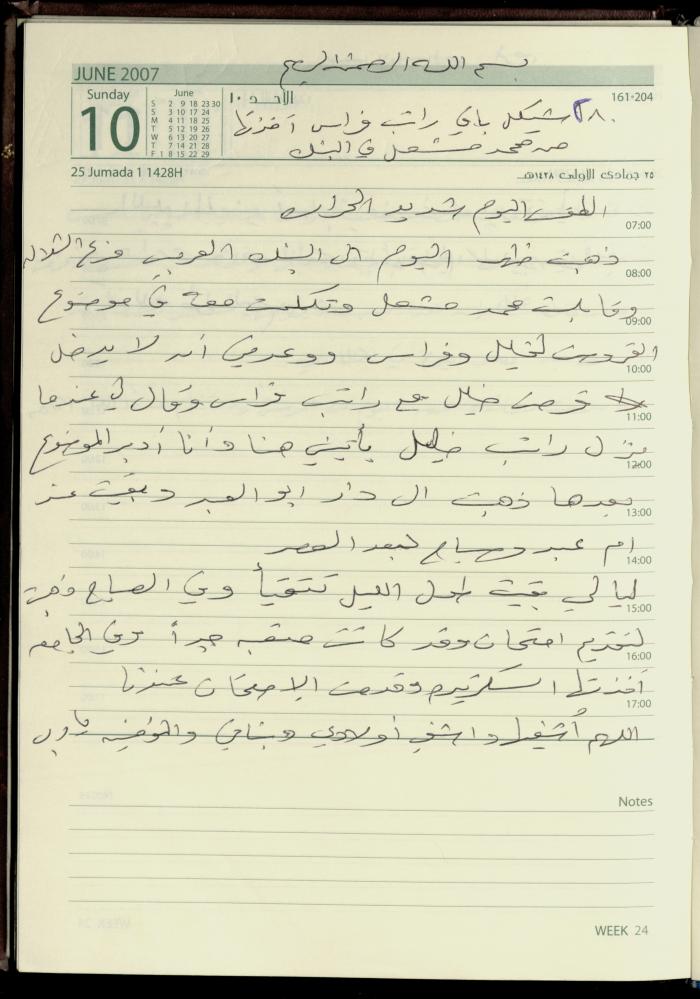 بسم الله الرحمن الرحيم
JUNE 2007
Sunday
10
June
S 2 9 16 23 30
S 3 10 17 24
M 4 11 18 25
T 5 12 19 26
W 6 13 20 27
T 7 14 21 28
F 1 8 15 22 29
الأحد ١٠
161-204
شيكل باقي راتب فراس أخذتها
من محمد مشعل في البنك
25 Jumada 1 1428H
٢٥ جمادى الاولى ١٤٢٨هـ
الطقس اليوم شديد الحرارة
07:00
ذهبت ظهر اليوم الى البنك العربي فرع
08:00
وقابلت محمد مشعل وتكلمت معه في موضوع
09:00
القروض لخليل وفراس ووعدني أنه لا يدخل
10:00
قرض خليل مع راتب فراس وقال لي عندما
11:00
ينزل راتب خليل يأتيني هنا وأنا أدبر الموضوع
12:00
بعدها ذهبت الى دار ابو العبد وبقيت عند
13:00
ام عبد وصباح لبعد العصر
14:00
ليالي بقيت طول الليل تتقيأ وفي الصباح ذهبت
15:00
لتقديم امتحان وقد كانت متعبه جداً وفي الجامعه
16:00
أخذتها السكرتيره وقدمت الامتحان عندها
17:00
اللهم أشفيها واشفي أولادي وبناتي
Notes
WEEK 24